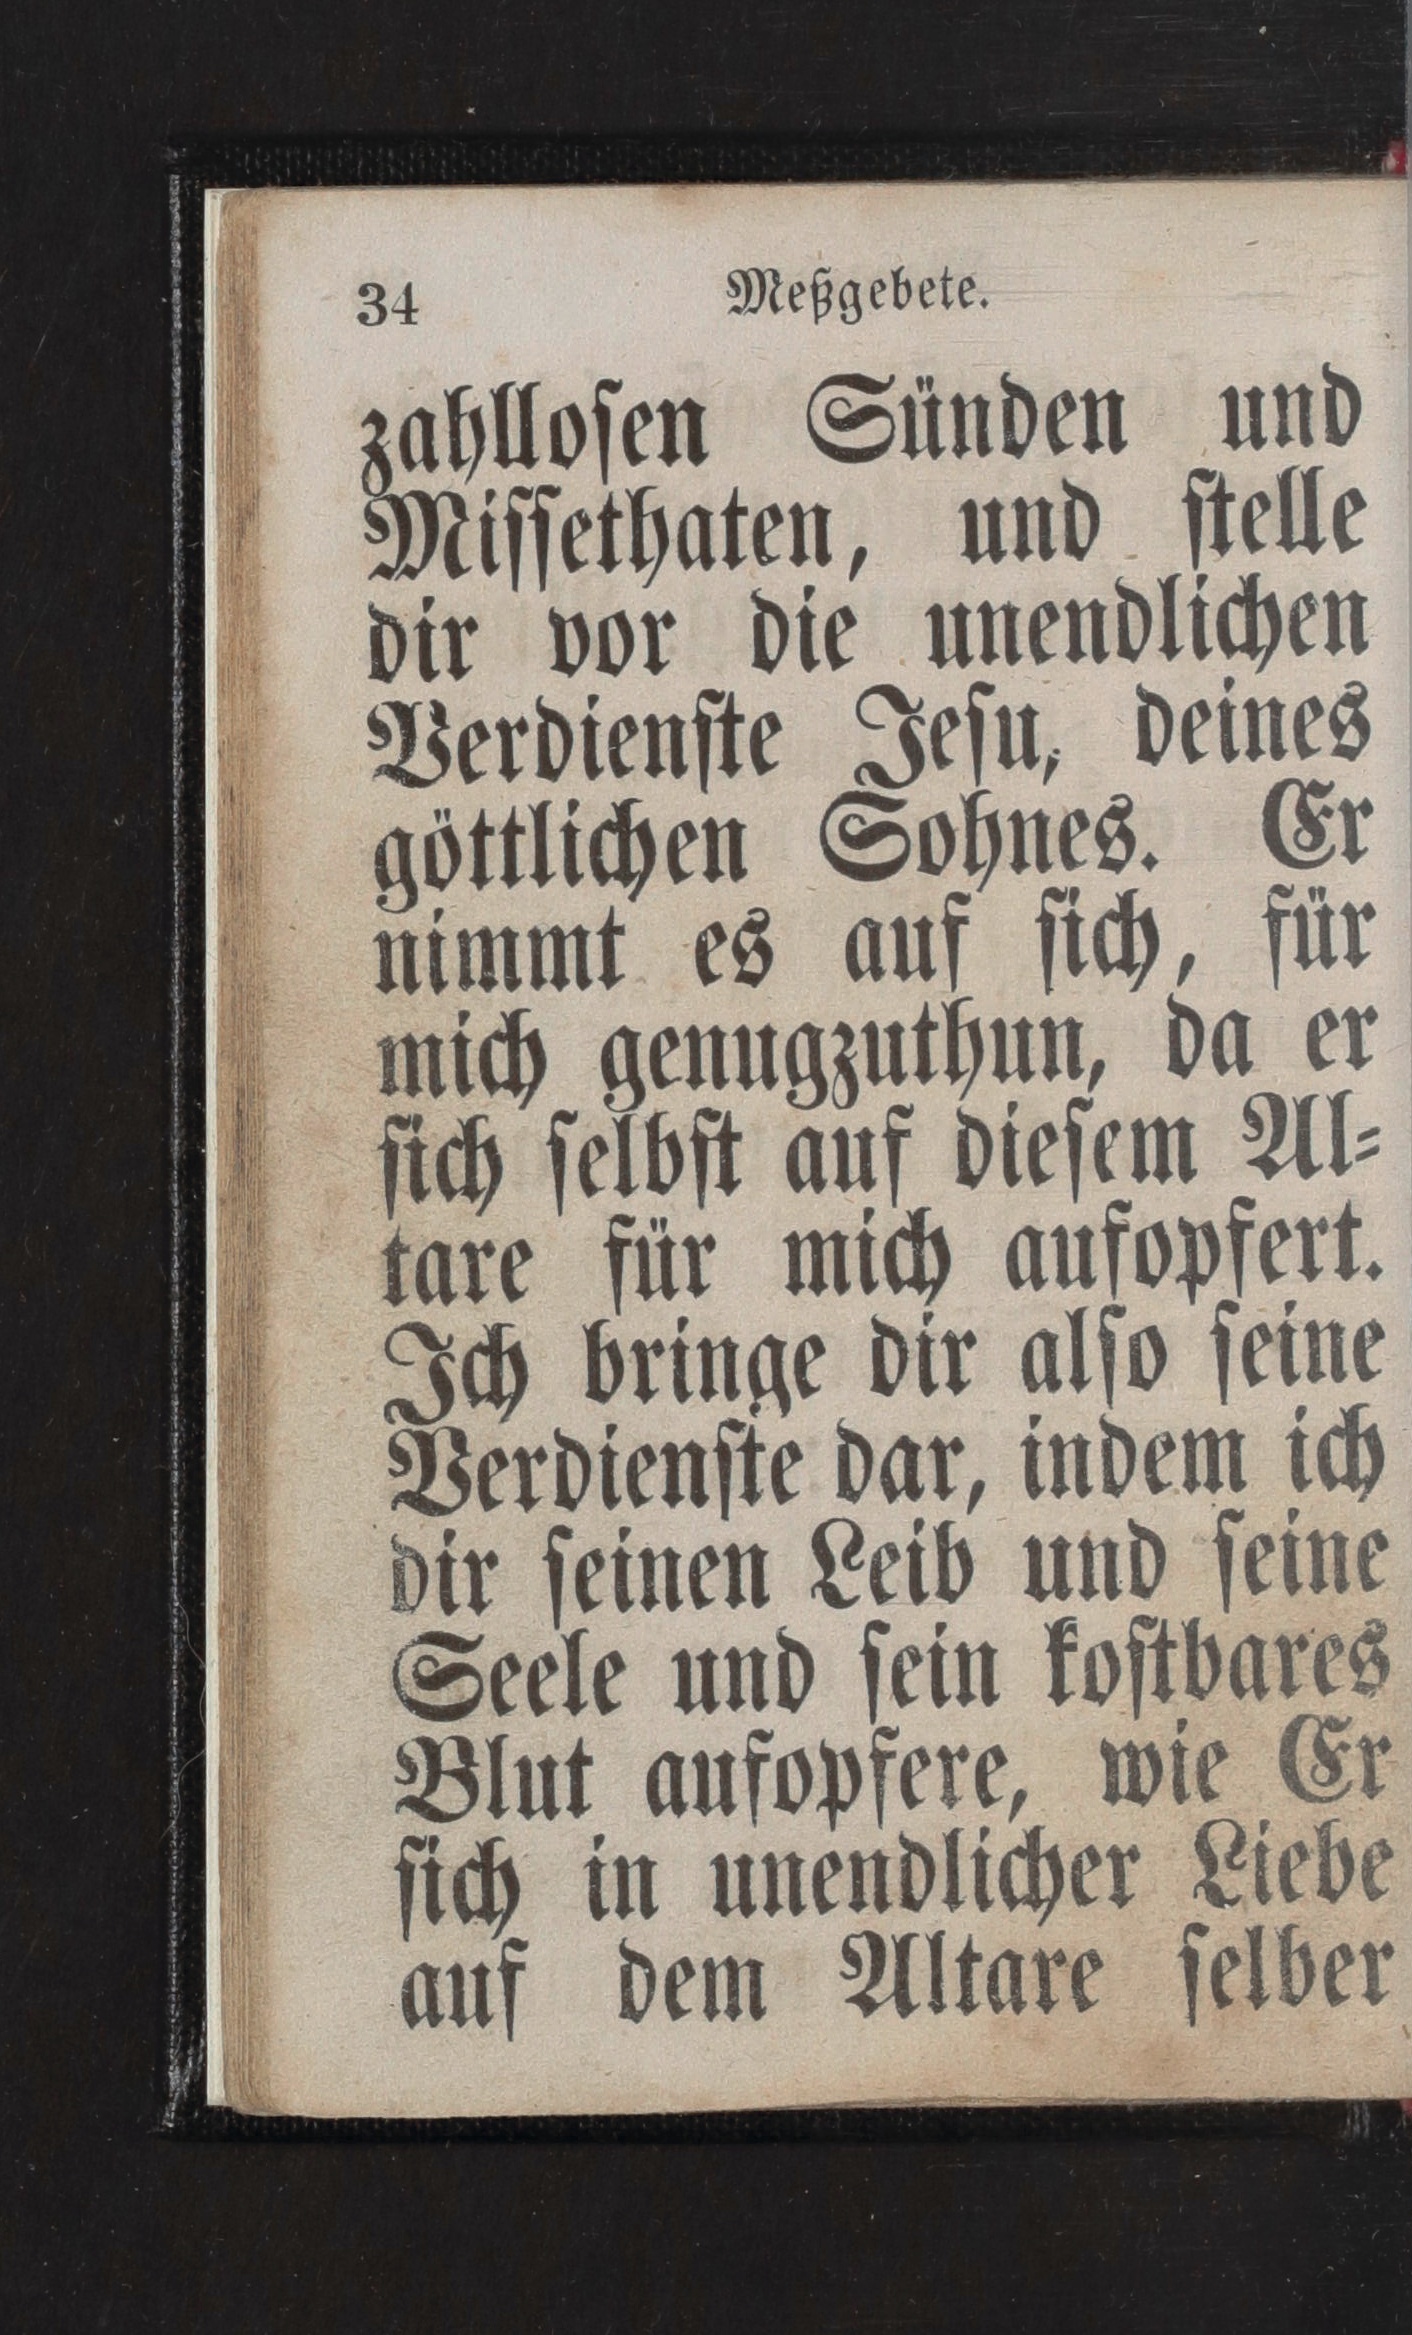 34 Meßgebete.
zahllosen Sünden und
Missethaten, und stelle
dir vor die unendlichen
Verdienste Jesu, deines
göttlichen Sohnes. Er
nimmt es auf sich, für
mich genugzuthun, da er
sich selbst auf diesem Al-
tare für mich aufopfert.
Ich bringe dir also seine
Verdienste dar, indem ich
dir seinen Leib und seine
Seele und sein kostbares
Blut aufopfere, wie Er
sich in unendlicher Liebe
auf dem Altare selber